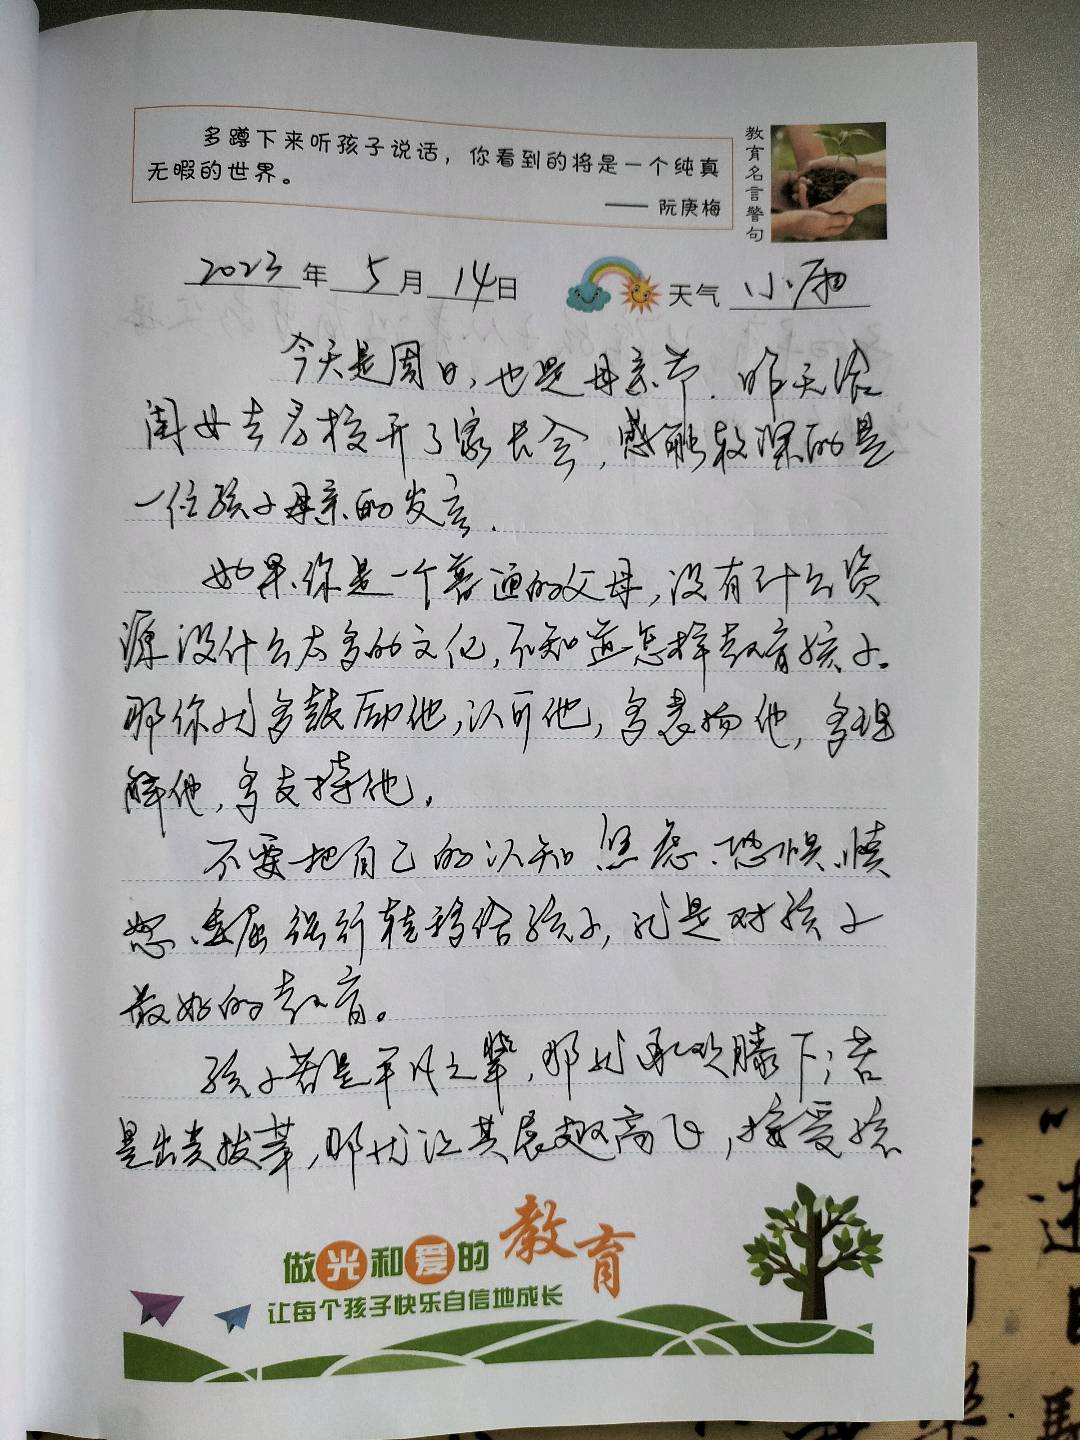 多蹲下来听孩子说话，你看到的将是一个纯真
无暇的世界。
—— 阮庚梅
教育名言警句
2023年5月14日 天气 小雨
今天是周日，也是母亲节.昨天给
闺女去名校开了家长会,感触较深的是
一位孩子母亲的发言.
如果你是一个普通的父母,没有什么资
源没什么太多的文化,不知道怎样教育孩子。
那你就多鼓励他,认可他,多表扬他,多理
解他,多支持他。
不要把自己的认知 焦虑、恐惧、愤
怒、委屈强行转移给孩子,就是对孩子
最好的教育。
孩子若是平凡之辈,那就承欢膝下;若
是出类拔萃,那就让其展翅高飞,接受孩
做光和爱的教育
让每个孩子快乐自信地成长